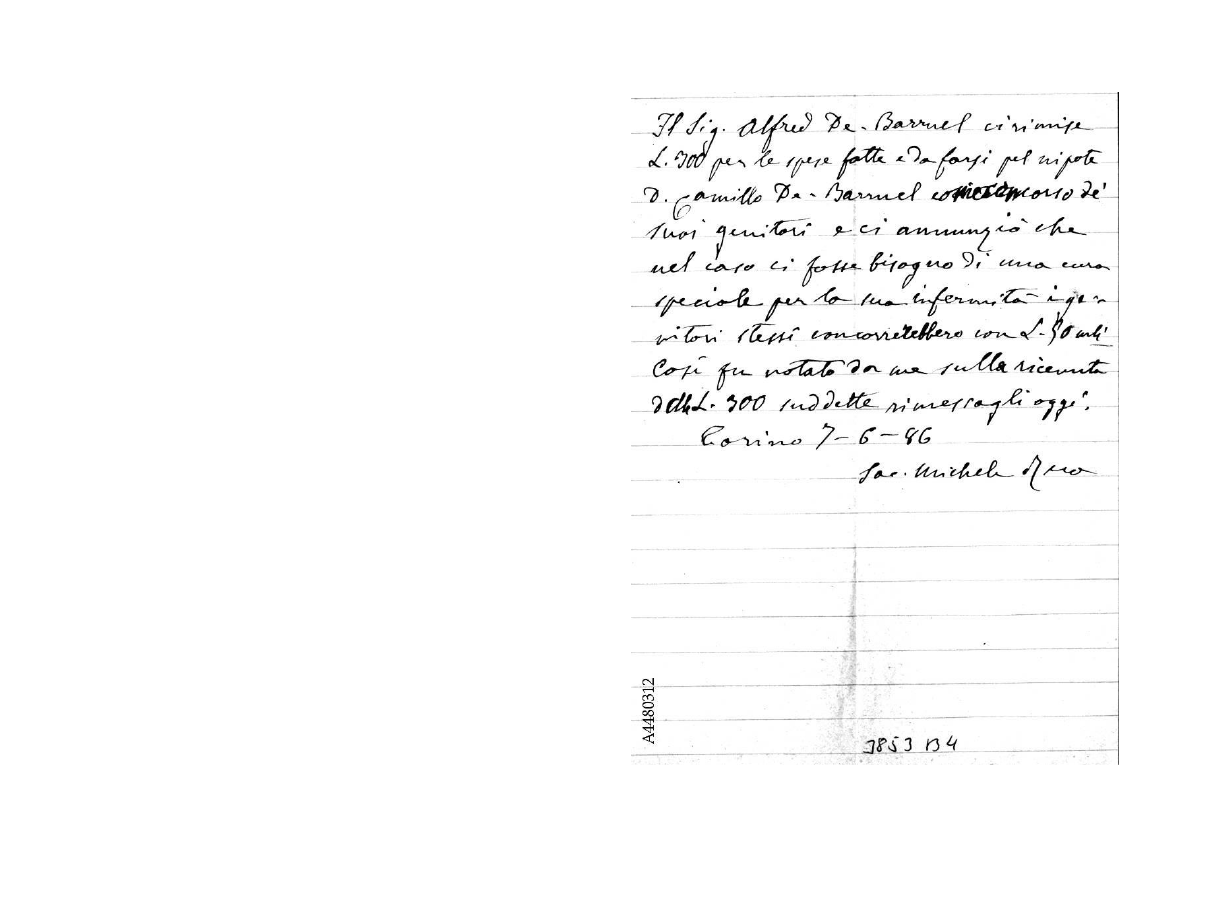 Il Sig. Alfred De-Barruel ci rimise
L. 300 per le spese fatte e da farsi pel nipote
D. Camillo De-Barruel concorso de'
suoi genitori e ci annunziò che
nel caso ci fosse bisogno di una cura
speciale per la sua infermità i ge-
nitori stessi concorrerebbero con L.
Così fu notato da me sulla ricevuta
delle L. 300 suddette rimessagli oggi.
Torino 7-6-86
Sac. Michele Rua
A4480312
3853 B4